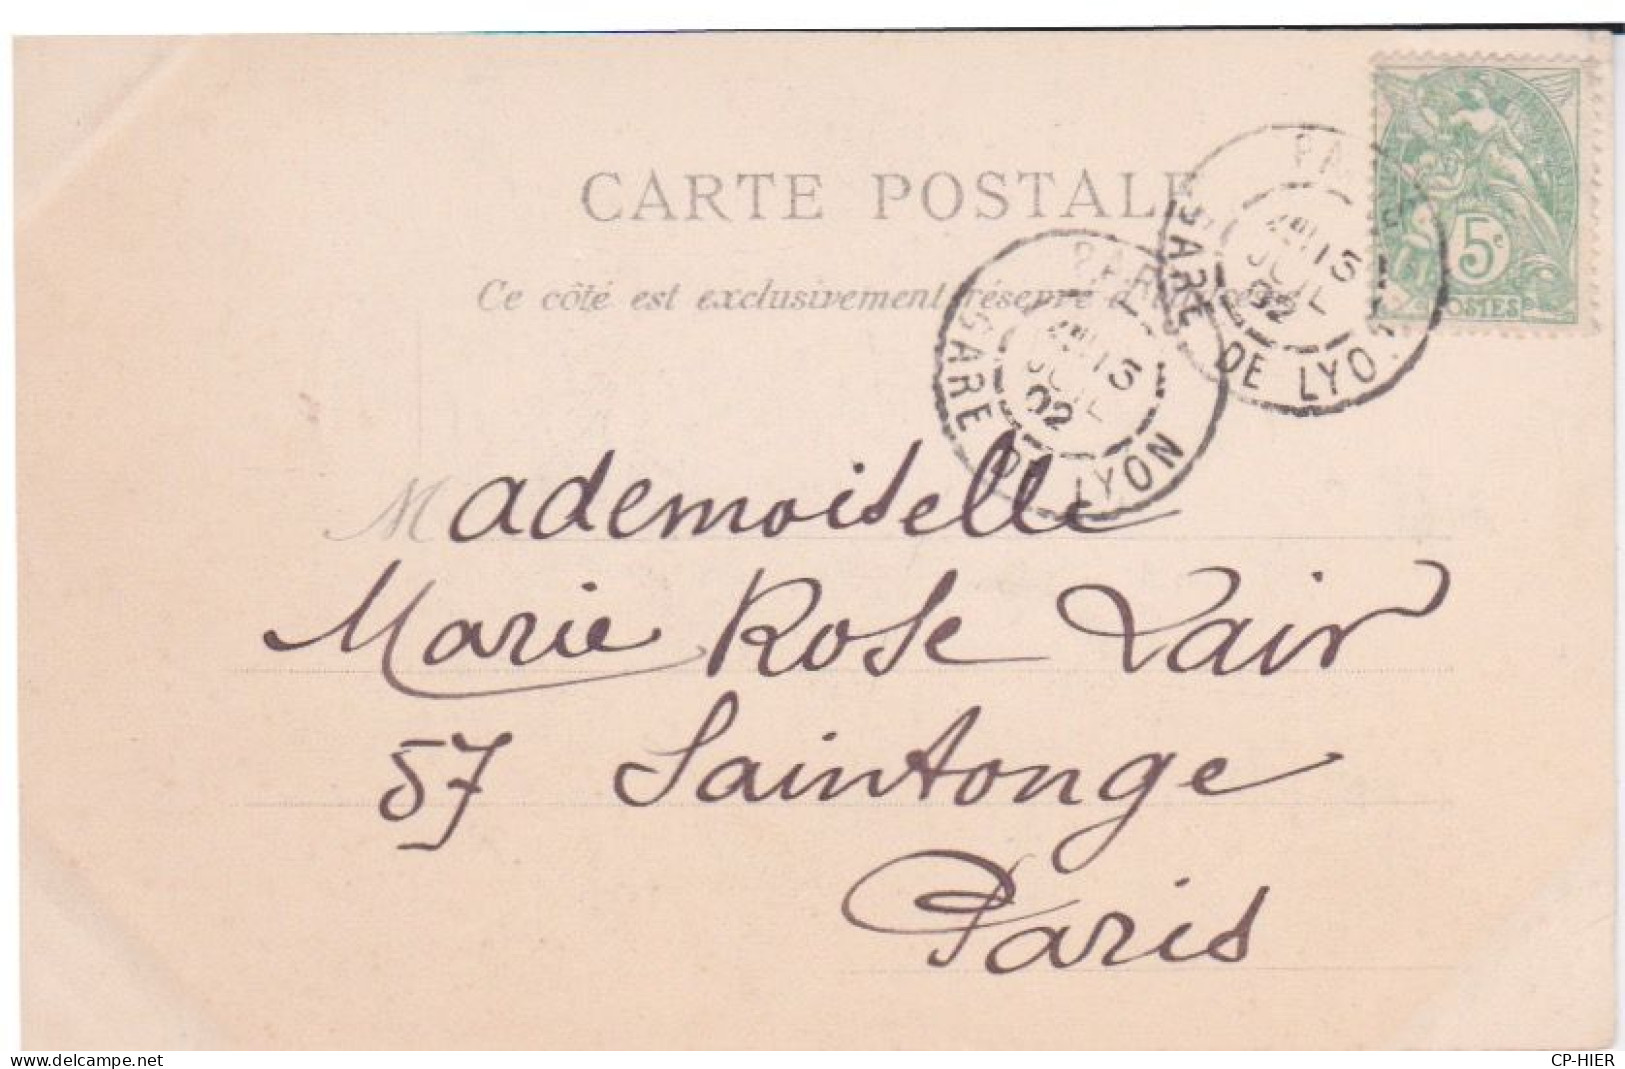 CARTE POSTALE
Ce côté est exclusivement réservé à
PARIS
GARE DE LYON
15
02
PARIS
GARE DE LYON
15
02
5c
POSTES
Mademoiselle
Marie Rose Lair
57 Saintonge
Paris
www.delcampe.net
CP-HIER